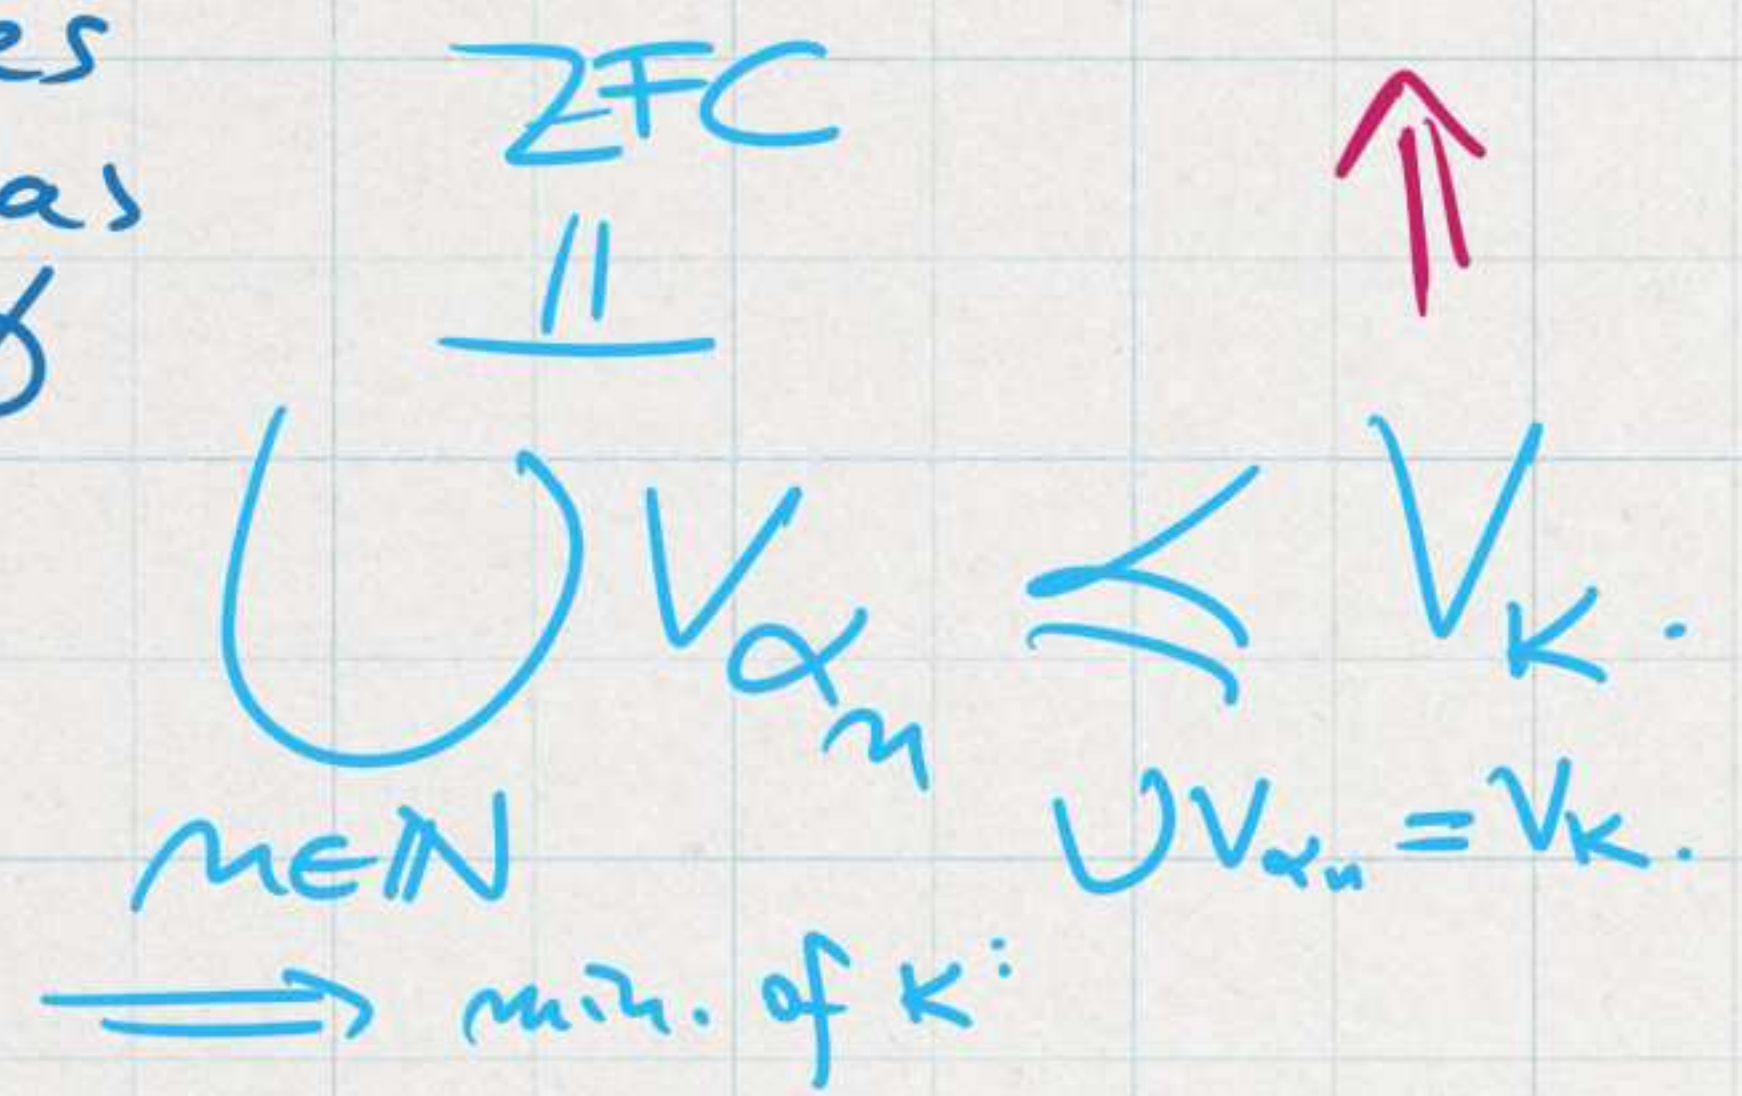 es
as
ZFC
⫫
⋃ V_{α_n} ≼ V_κ.
n∈ℕ
⋃V_{α_n} = V_κ.
⟹ min. of κ: